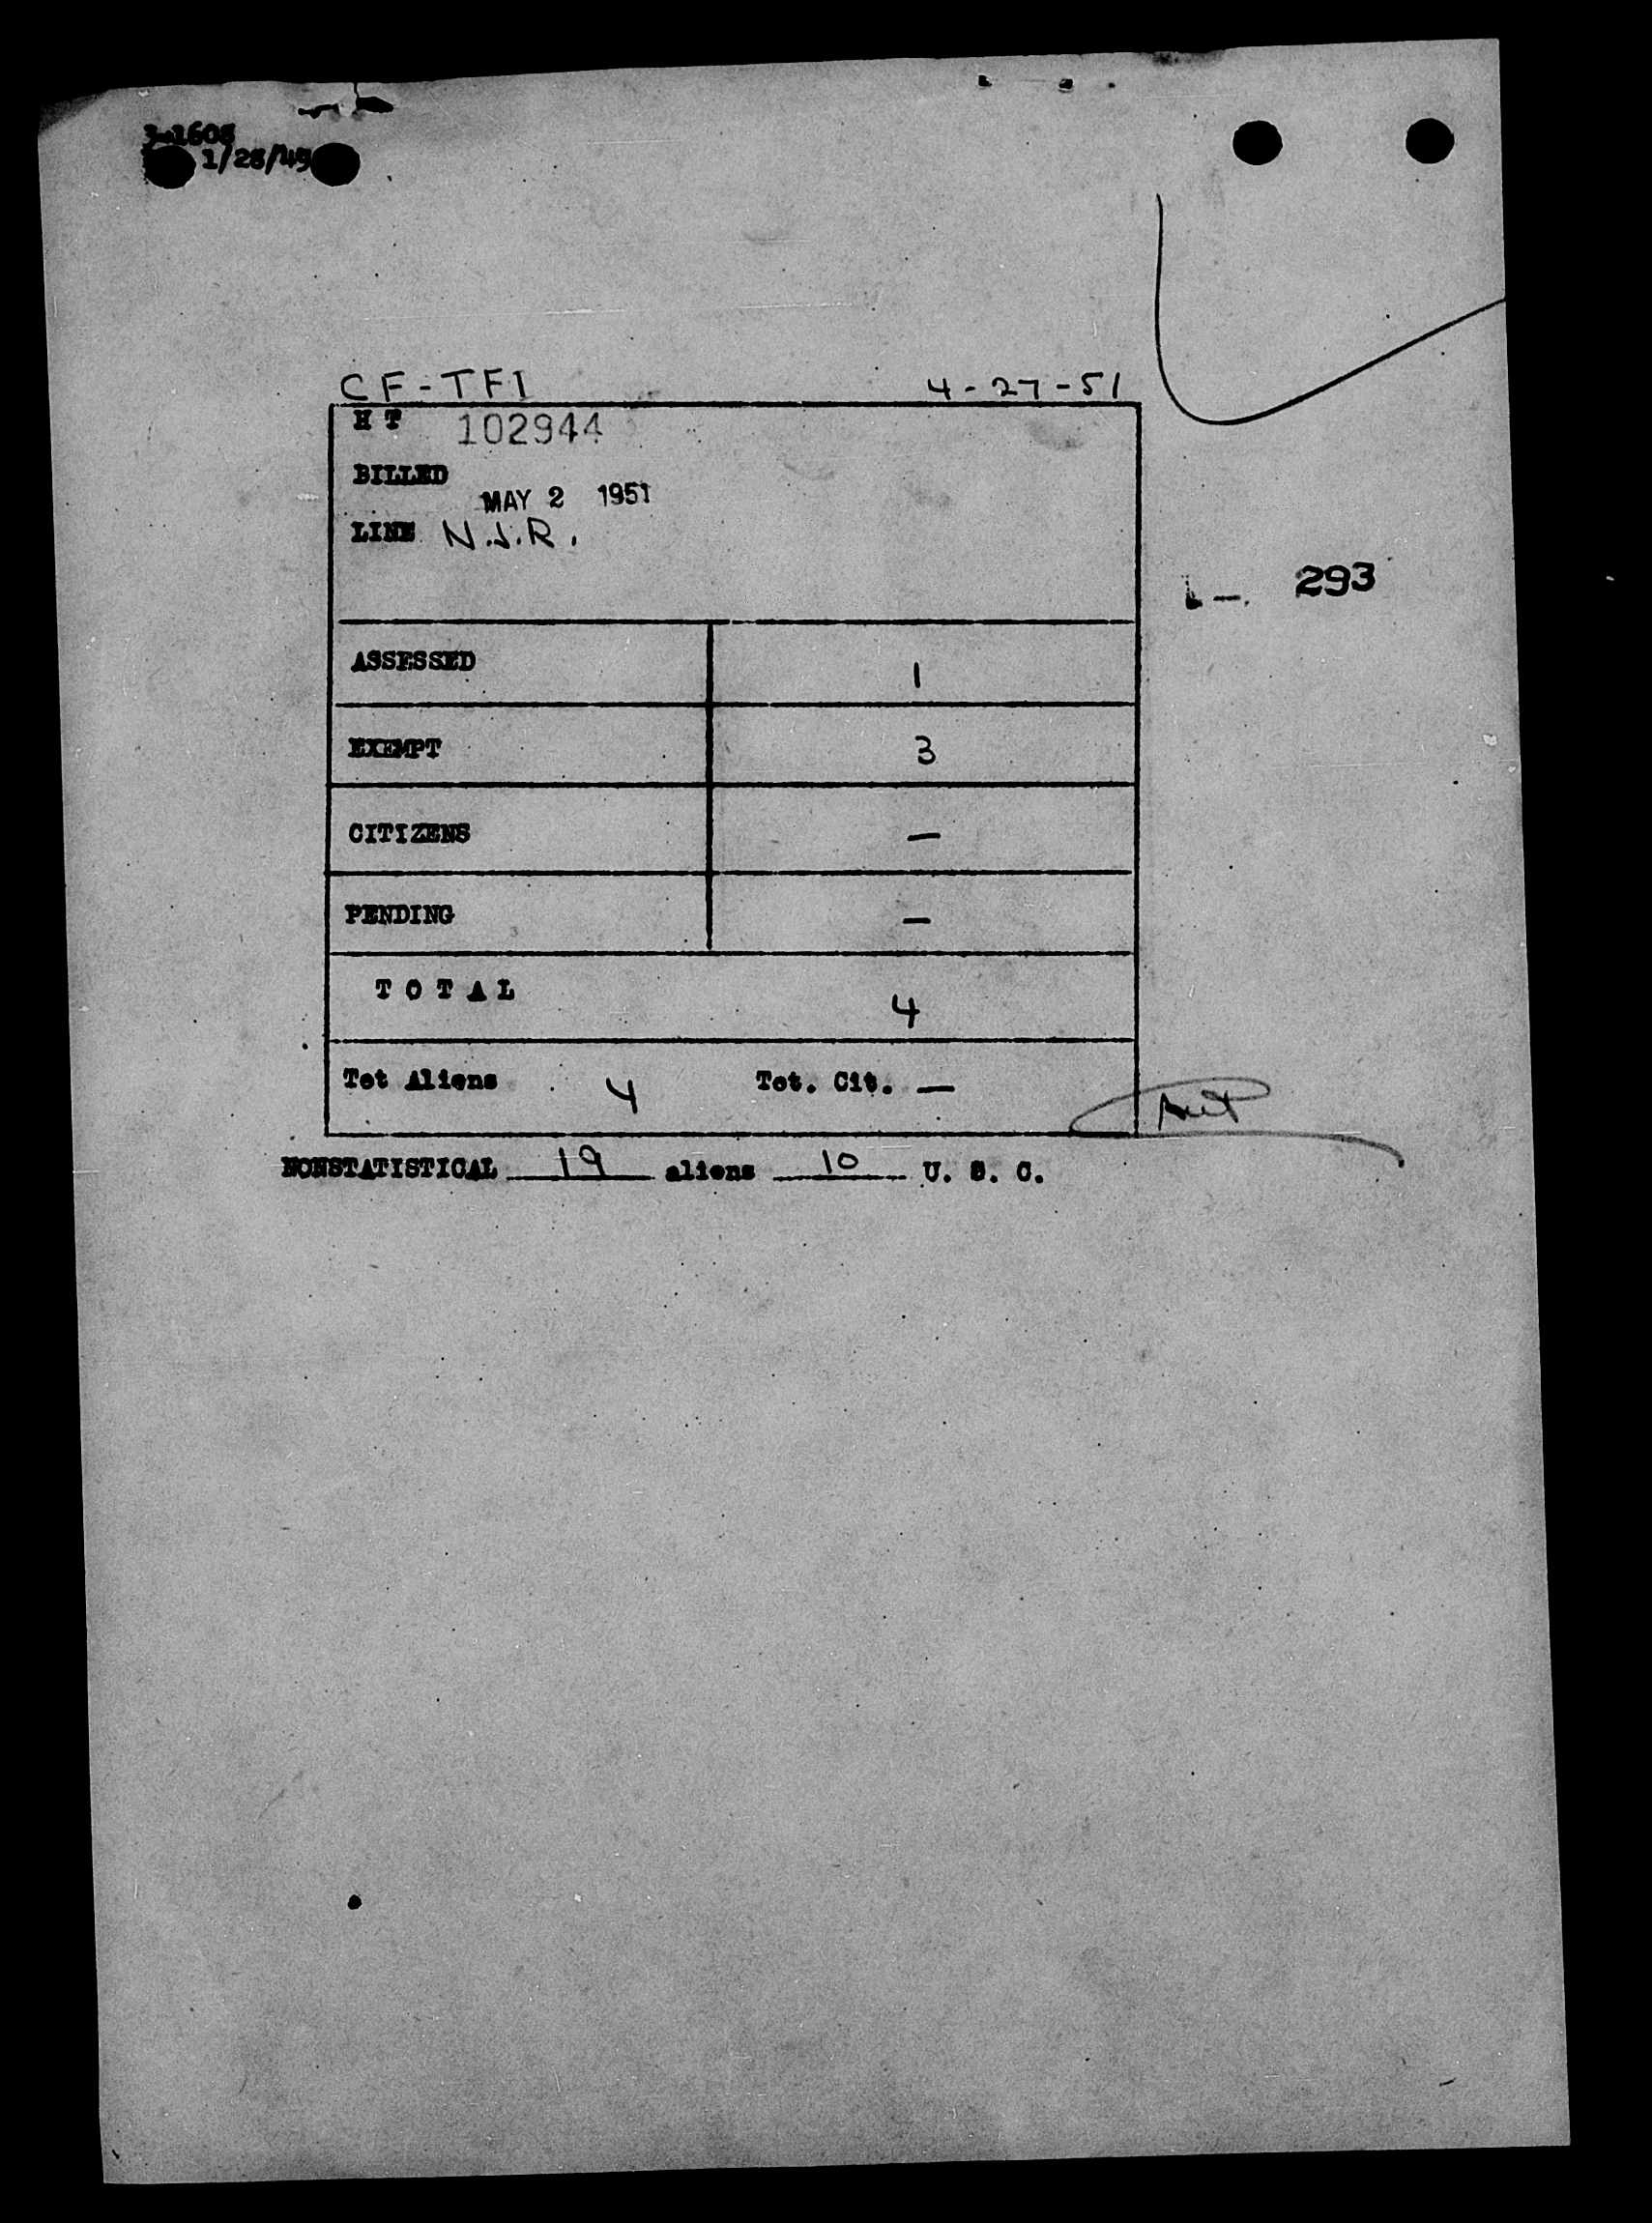 3-1608
1/28/49
CF-TFI 4-27-51
H T 102944
BILLED
MAY 2 1951
LINE
293
ASSESSED 1
EXEMPT 3
CITIZENS —
PENDING —
T O T A L 4
Tot Aliens 4 Tot. Cit. —
NONSTATISTICAL 19 aliens 10 U. S. C.